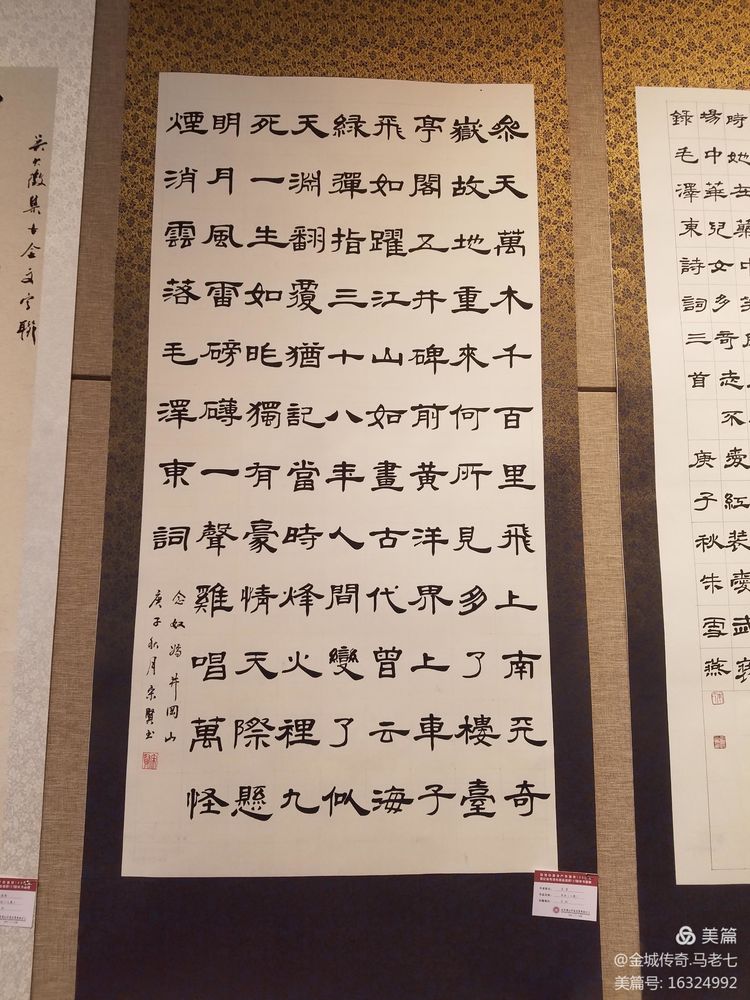 時她在
場中華兒女多奇志不愛紅裝愛武裝
錄毛澤東詩詞三首 庚子秋朱雪燕
叅天萬木千百里飛上南天奇
嶽故地重來何所見多了樓臺
亭閣五井碑前黃洋界上車子
飛如躍江山如畫古代曾云海
綠彈指三十八年人間變了似
天淵翻覆猶記當時烽火裡九
死一生如昨獨有豪情天際懸
明月風雷磅礴一聲雞唱萬怪
煙消雲落毛澤東詞
念奴嬌井岡山
庚子秋月宗賢书
吴大澂集古金文字聯
美篇
@金城传奇.马老七
美篇号: 16324992